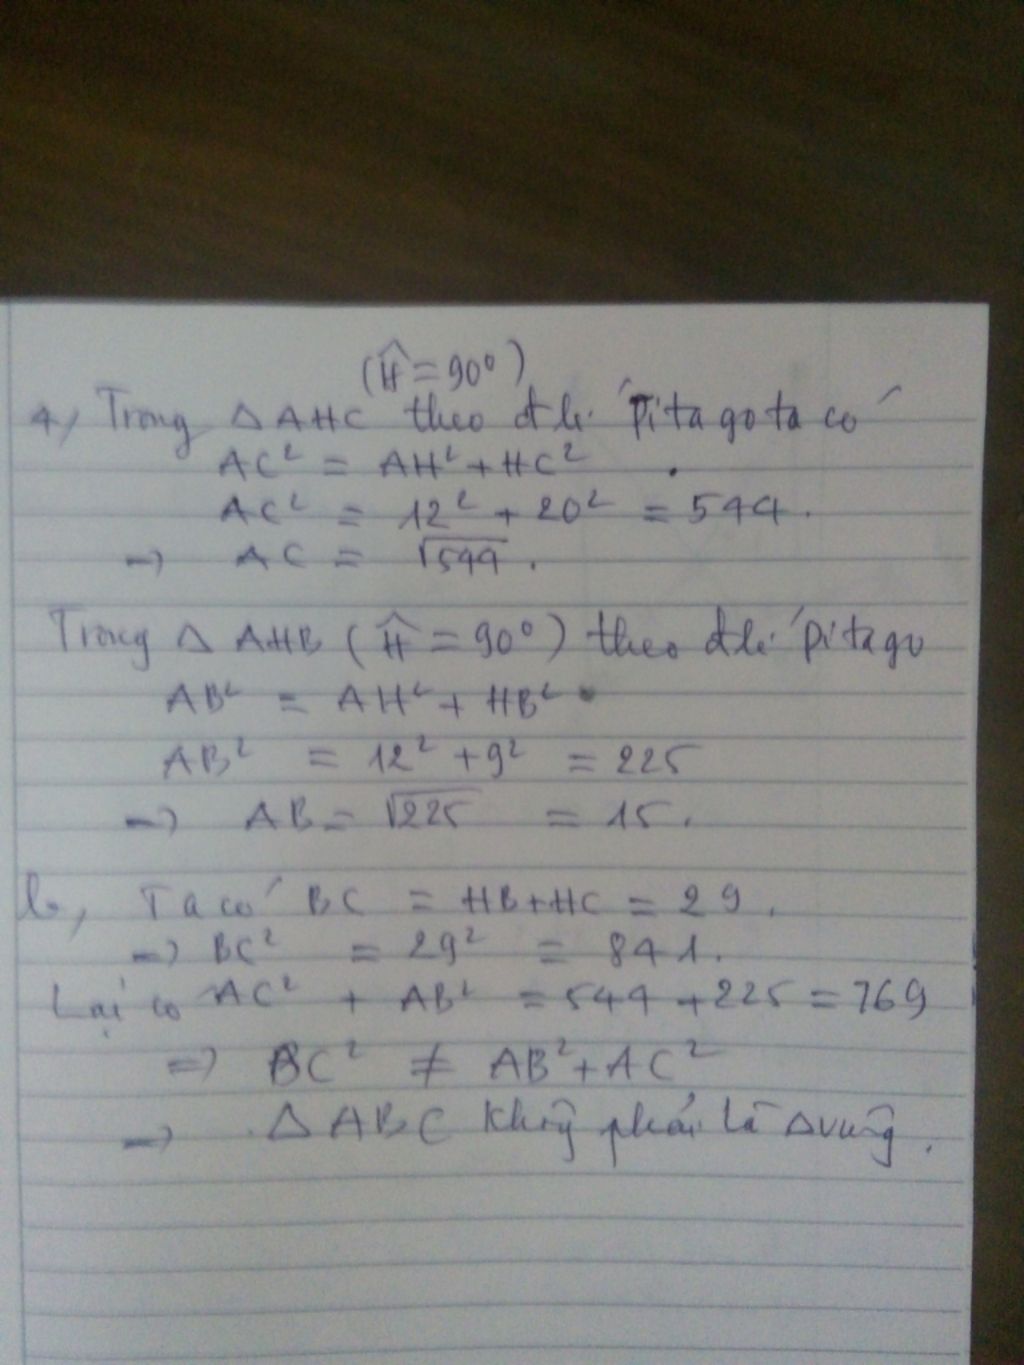 (Ĥ = 90°)
a, Trong △AHC theo đ lí Pitago ta có
AC² = AH² + HC²
AC² = 12² + 20² = 544.
=> AC = √544.
Trong △ AHB (Ĥ = 90°) theo đ lí pitago
AB² = AH² + HB²
AB² = 12² + 9² = 225
=> AB = √225 = 15.
b, Ta có BC = HB + HC = 29.
=> BC² = 29² = 841.
Lại có AC² + AB² = 544 + 225 = 769
=> BC² ≠ AB² + AC²
=> △ABC không phải là △vuông.